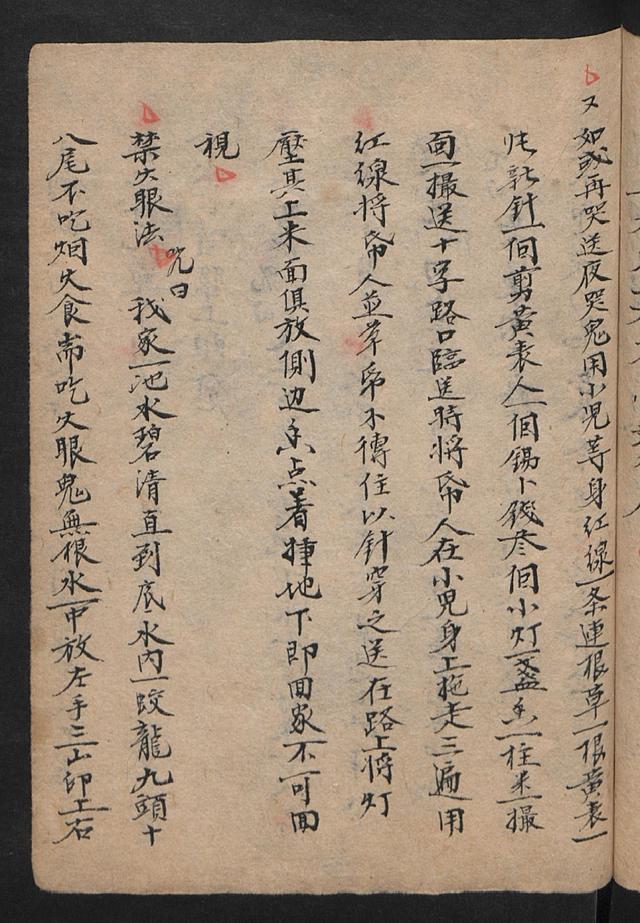 又如或再哭送夜哭鬼用小児等身紅線一条連根草一根黃表一
张乳針一個剪黃表人一個錫卜錢叁個小灯一盞香一柱米一撮
面一撮送十字路口臨送時將帋人在小児身上拖走三遍用
紅線將帋人並草帋卜縛住以針穿之送在路上將灯
壓其上米面俱放側边香点着揷地下即回家不可回
視
禁火眼法 咒曰 我家一池水碧清直到底水内一蛟龍九頭十
八尾不吃烟火食耑吃火眼鬼無根水一中放左手三山印上右